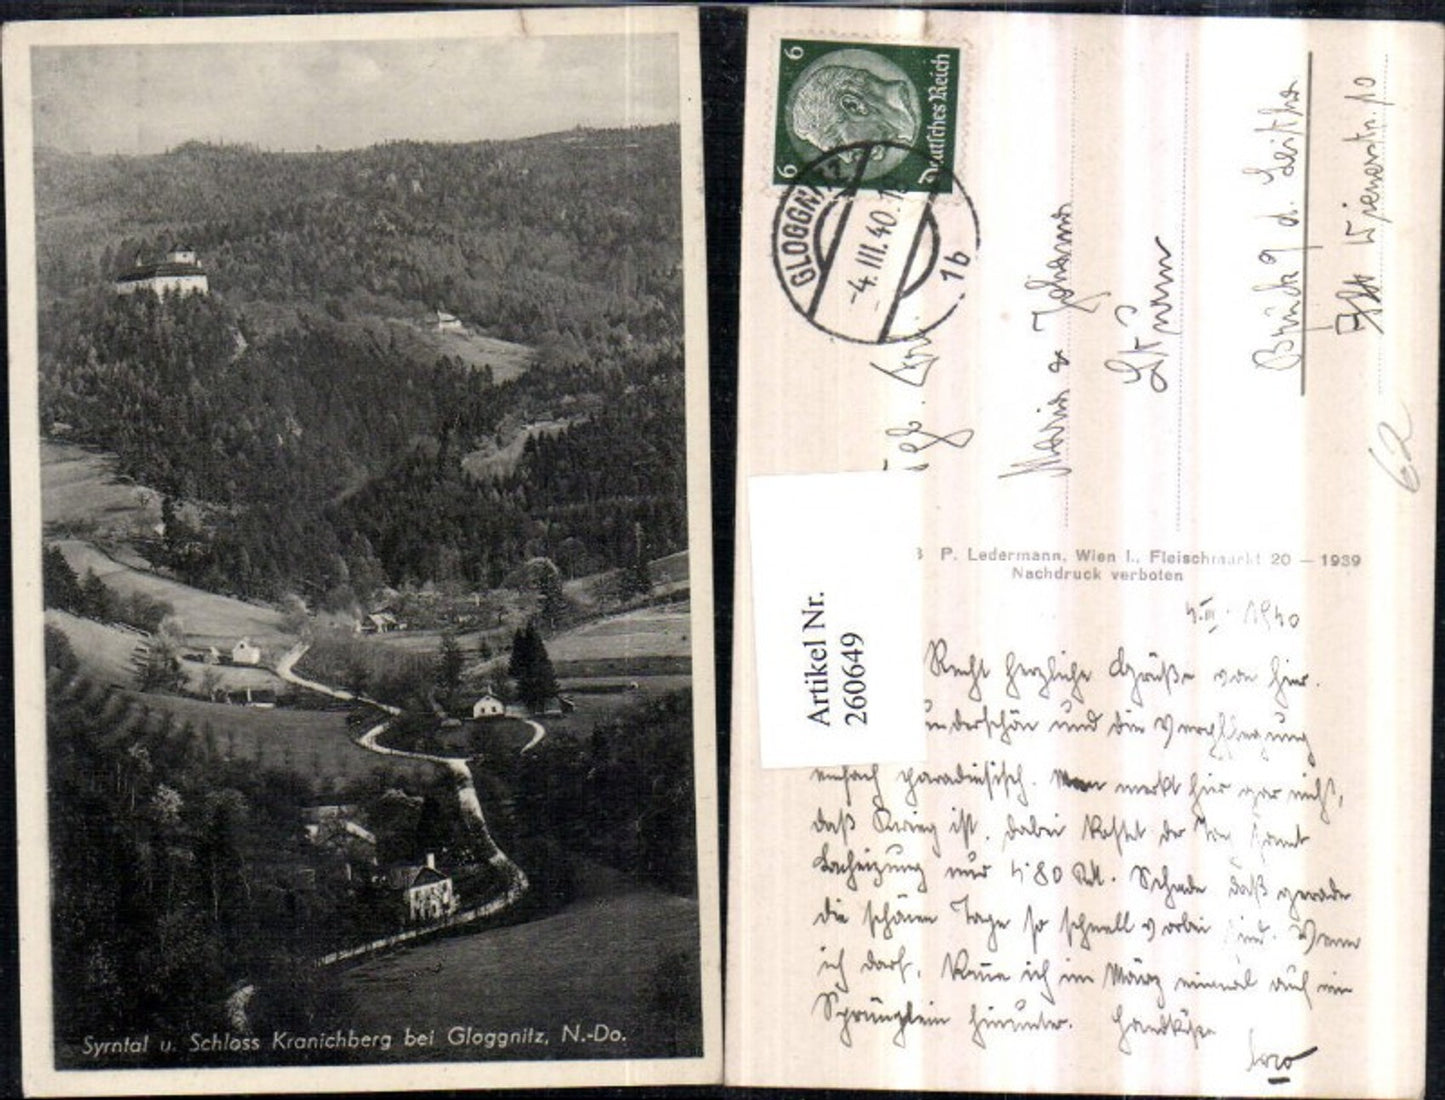 Syrntal u. Schloss Kranichberg bei Gloggnitz, N.-Do.
6 6
Deutsches Reich
GLOGGNITZ
-4.III.40.11
1b
Maria & Johann
Sturm
Bruck a. d. Leitha
Wienerstr. 10
62
P. Ledermann, Wien I., Fleischmarkt 20 — 1939
Nachdruck verboten
Artikel Nr.
260649
4.III. 1940
Recht herzliche Grüße von hier.
underschön und die Verpflegung
einfach paradiesisch. Man merkt hier gar nicht,
daß Krieg ist. Dabei kostet der Tag samt
Beheizung nur 4.80 RM. Schade daß gerade
die schönen Tage so schnell vorbei sind. Wenn
ich darf, komme ich im März einmal auf ein
Sprünglein hinunter. Handküsse